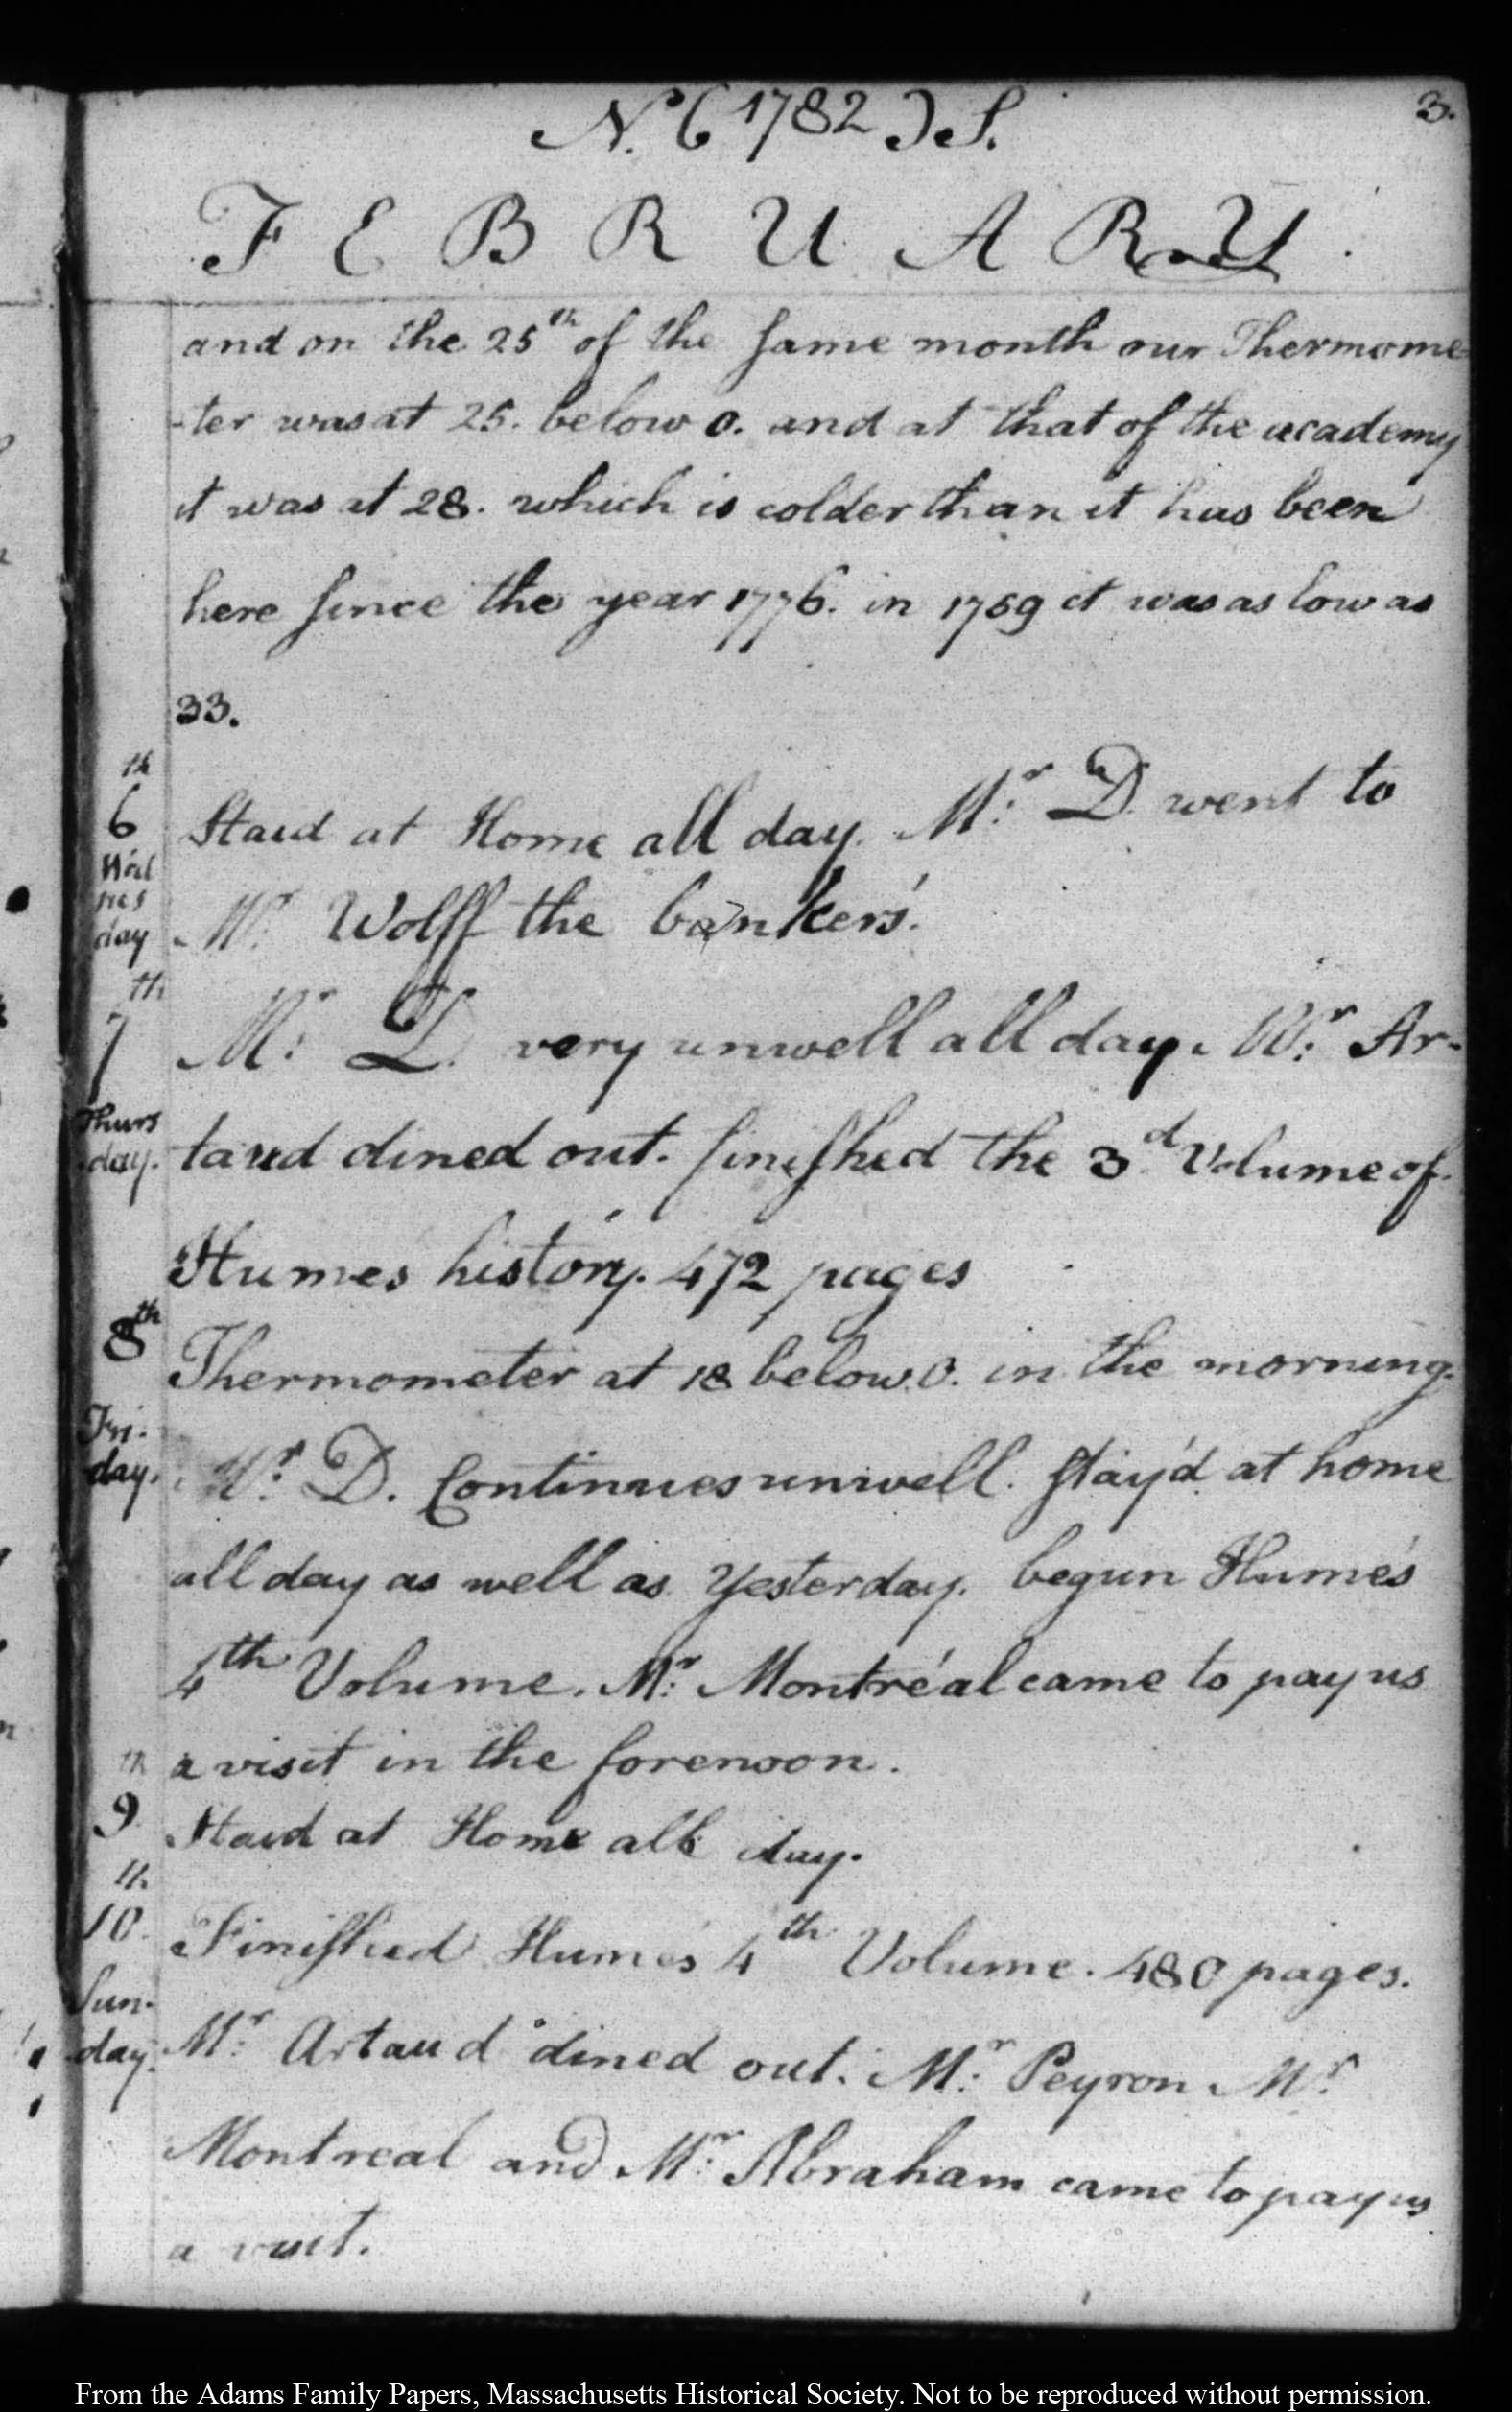 N.S. (1782) S.
3.
FEBRUARY.
and on the 25th of the same month our Thermome-
-ter was at 25. below 0. and at that of the academy
it was at 28. which is colder than it has been
here since the year 1776. in 1759 it was as low as
33.
6th Wed nes day Staid at Home all day. Mr: D. went to
Mr: Wolff the bankers'.
7th Thurs day. Mr: D. very unwell all day. Mr: Ar-
taud dined out. finished the 3d Volume of
Humes history. 472 pages
8th Fri- day. Thermometer at 18 below. 0. in the morning.
Mr: D. Continues unwell. stay'd at home
all day as well as Yesterday. begun Hume's
4th Volume. Mr: Montréal came to pay us
a visit in the forenoon.
9th Staid at Home all day.
10th Sun- day. Finished Hume's 4th Volume. 480 pages.
Mr: Artaud dined out. Mr: Peyron Mr:
Montreal and Mr: Abraham came to pay us
a visit.
From the Adams Family Papers, Massachusetts Historical Society. Not to be reproduced without permission.